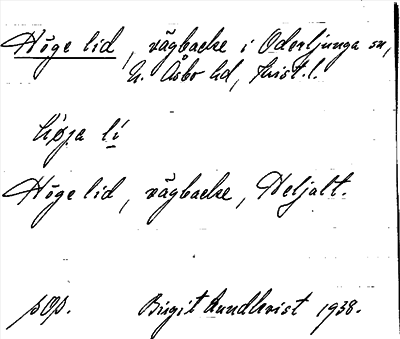 Höge lid, vägbacke i Oderljunga sn,
N. Åsbo hd, Krist. l.
høja lí
Höge lid, vägbacke, Heljalt.
sOp. Birgit Lundkvist 1938.